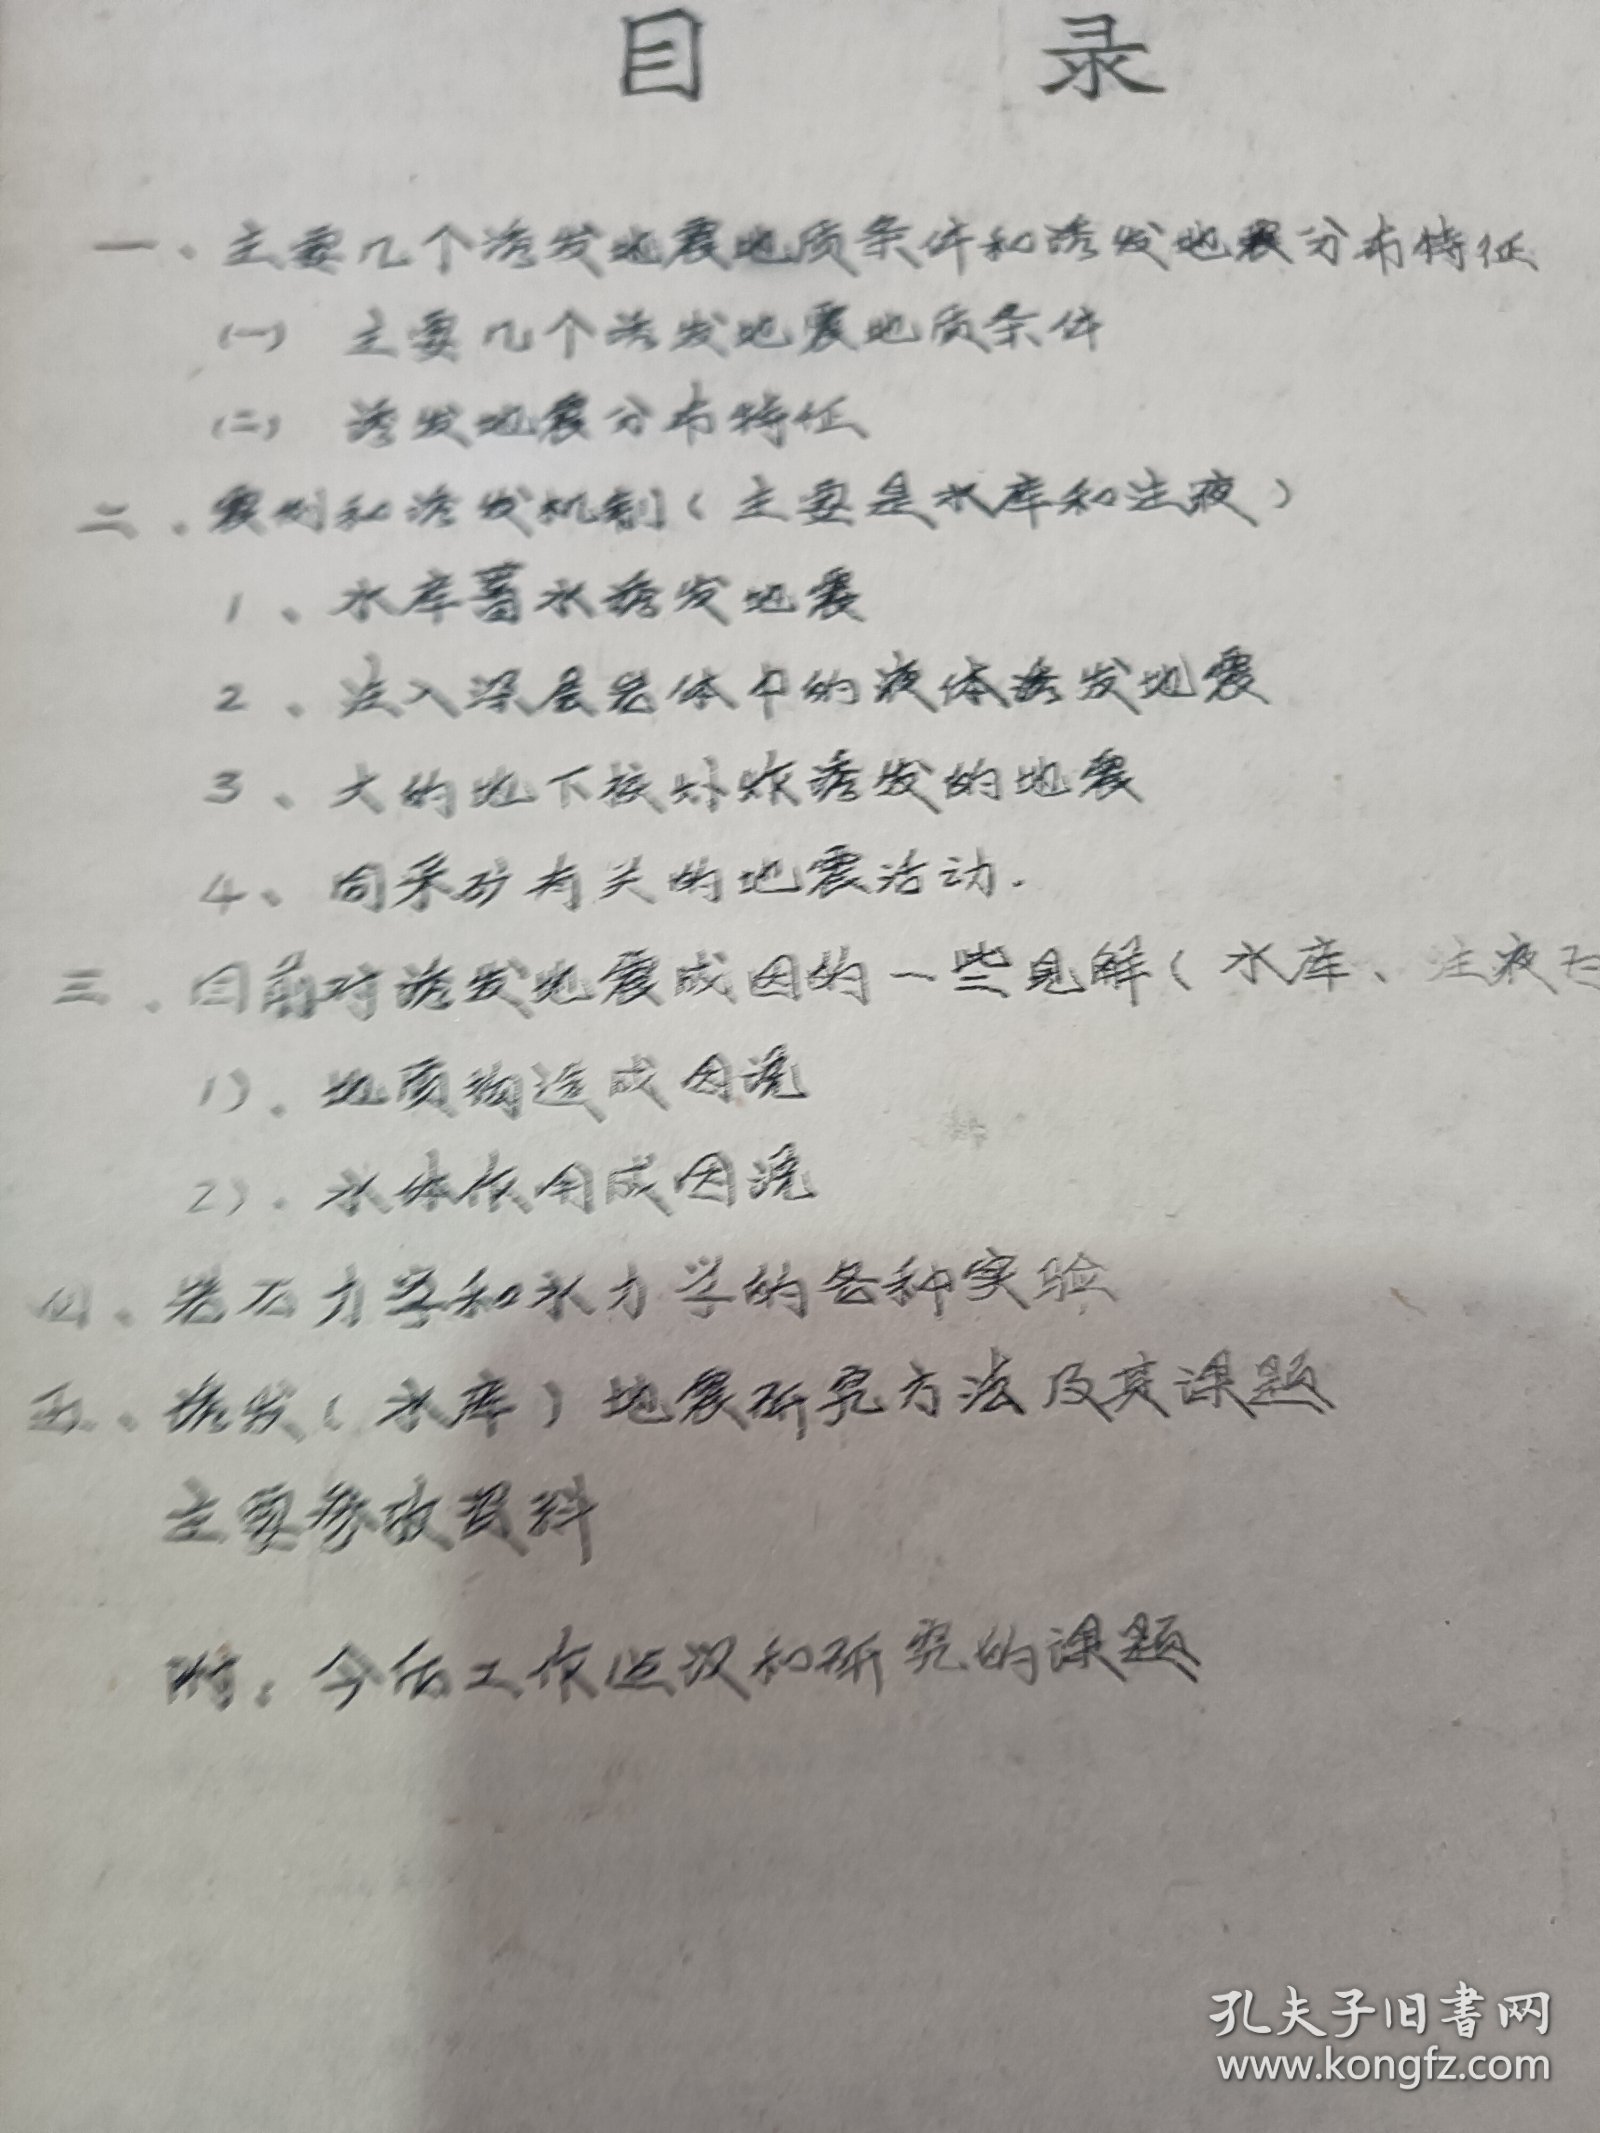 目 录
一、主要几个诱发地震地质条件和诱发地震分布特征
(一) 主要几个诱发地震地质条件
(二) 诱发地震分布特征
二、震例和诱发机制(主要是水库和注液)
1、水库蓄水诱发地震
2、注入深层岩体中的液体诱发地震
3、大的地下核爆炸诱发的地震
4、同采矿有关的地震活动.
三、目前对诱发地震成因的一些见解(水库、注液为
1)、地质构造成因说
2)、水体作用成因说
四、岩石力学和水力学的各种实验
五、诱发(水库)地震研究方法及其课题
主要参考资料
附:今后工作建议和研究的课题
孔夫子旧书网
www.kongfz.com